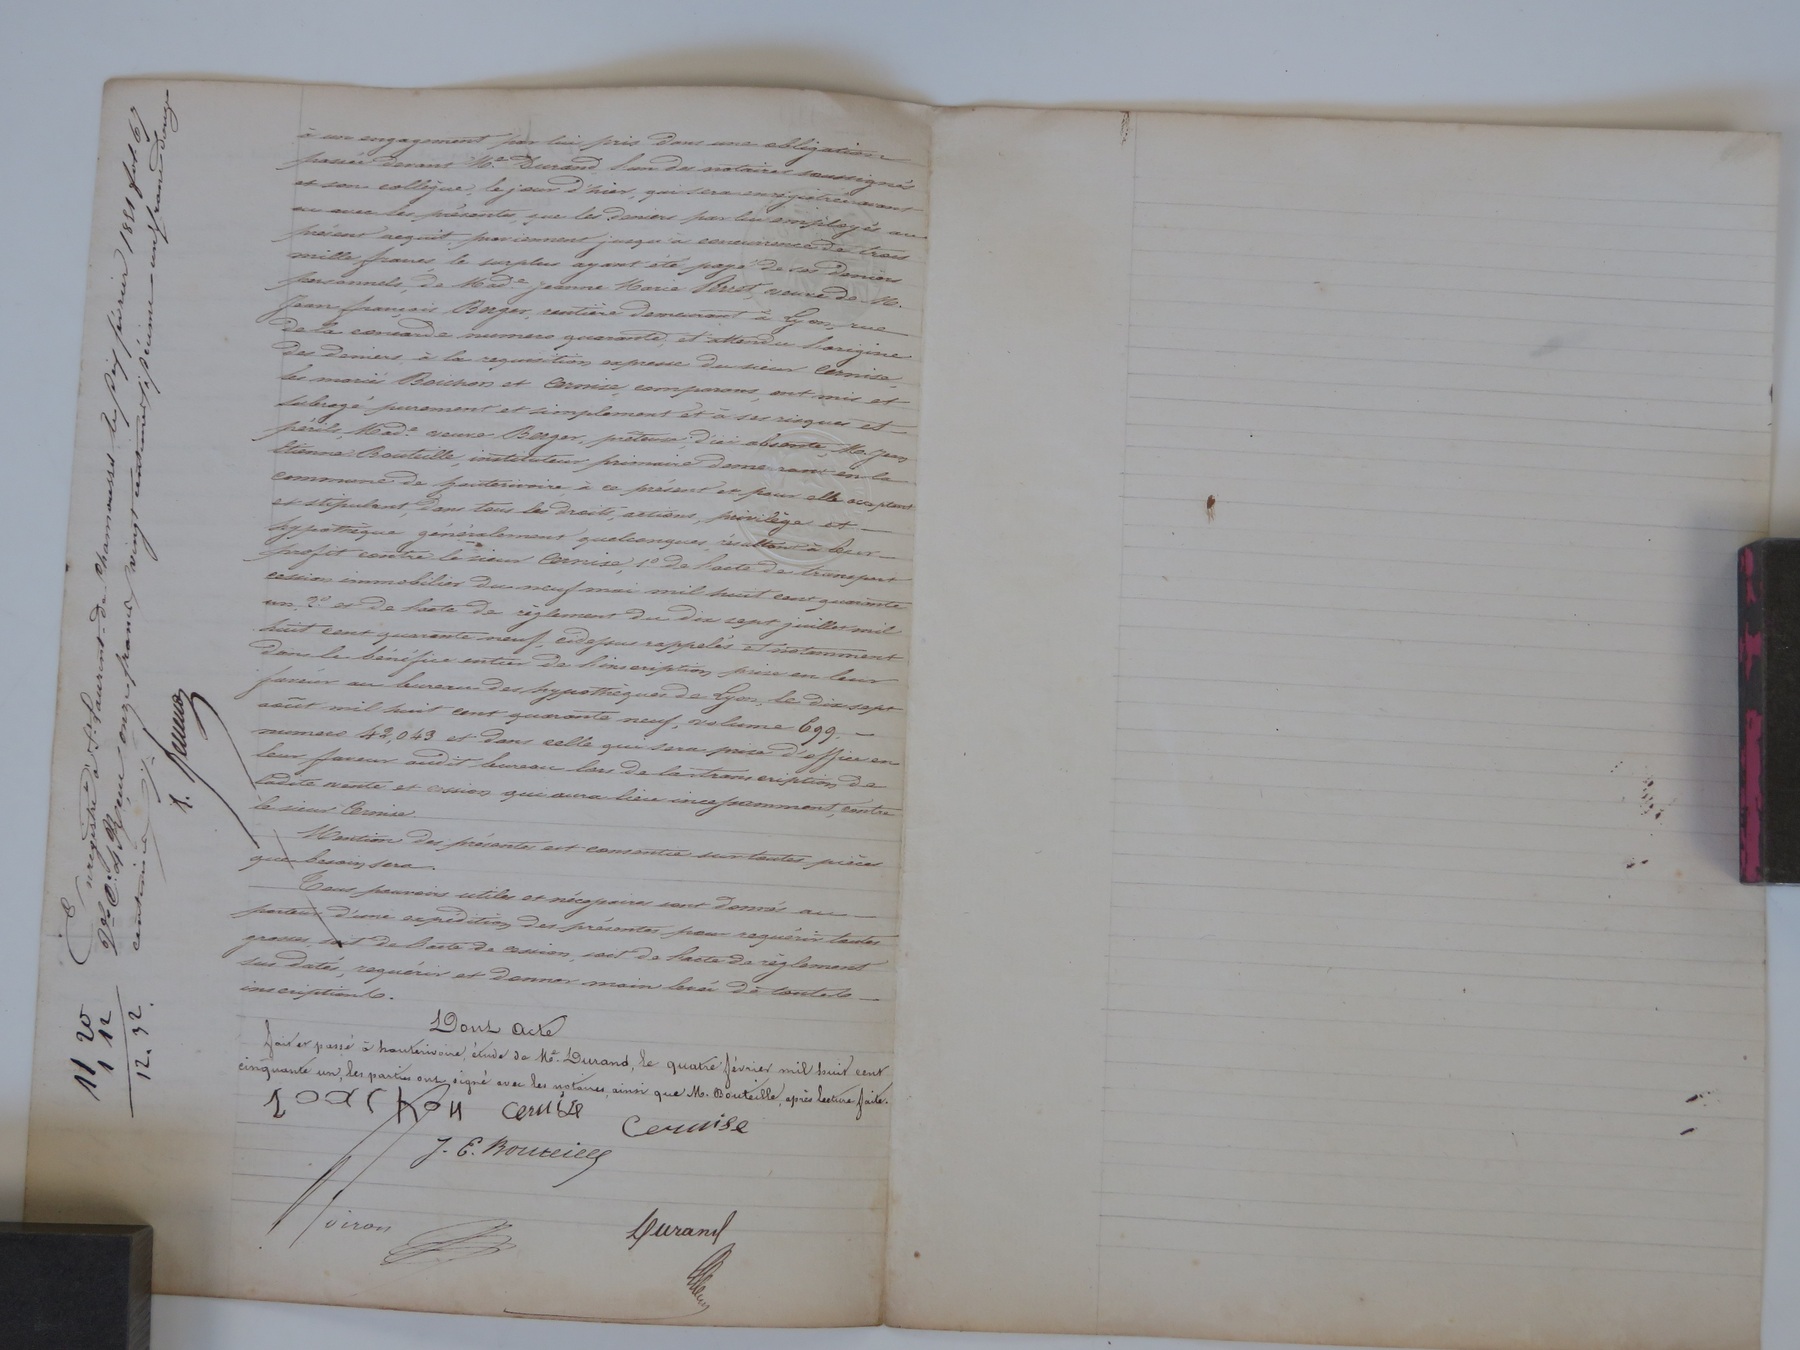 à un engagement par lui pris dans une obligation
passée devant Me Durand l'un des notaires soussignés
et son collègue, le jour d'hier, qui sera enregistrée avant
ou avec les présentes, que les deniers par lui employés au
présent acquit, proviennent jusqu'à concurrence de trois
mille francs le surplus ayant été payé de ses deniers
personnels, de Made Jeanne Marie Perret, veuve de M.
Jean françois Berger, rentière demeurant à Lyon, rue
de la numero quarante, et attendu l'origine
des deniers, à la requisition expresse du sieur Cernise,
les mariés Boichon et Cernise, comparans, ont mis et
subrogé purement et simplement et à ses risques et
périls, Made veuve Berger, prêteuse, d'ici absente, M. Jean
Etienne Bouteille, instituteur primaire demeurant en la
commune de hauterivoire à ce présent et pour elle acceptant
et stipulant, dans tous les droits, actions, privilèges et
hypothèque généralement quelconques, résultant à leur
profit contre le sieur Cernise, 1o de l'acte de transport
cession immobilier du neuf mai mil huit cent quarante
un, 2o et de l'acte de règlement du dix sept juillet mil
huit cent quarante neuf, cidessus rappelés et notamment
dans le bénéfice entier de l'inscription prise en leur
faveur au bureau des hypothèques de Lyon, le dix sept
août mil huit cent quarante neuf, volume 699.
numero 42,043 et dans celle qui sera prise d'office en
leur faveur audit bureau lors de la transcription de
ladite vente et cession qui aura lieu incessamment, contre
le sieur Cernise
Mention des présentes est consentie sur toutes pièces
que besoin sera.
Tous pouvoirs utiles et nécessaires sont donnés au
porteur d'une expédition des présentes pour requérir toutes
grosses, soit de l'acte de cession, soit de l'acte de règlement
sus datés, requérir et donner main levée de toutes
inscriptions.
Dont acte
fait et passé à hauterivoire, étude de Me Durand, le quatre février mil huit cent
cinquante un, les parties ont signé avec les notaires, ainsi que M. Bouteille, après lecture faite.
Boaichon Cernise Cernise
J. E. Bouteille
Voiron Durand
Enregistré à St Laurent de Chamousset le dix février 1851 fol. 67
Vo C. Reçu onze francs vingt centimes, décime un franc douze
centimes
11, 20
1 12
12. 32